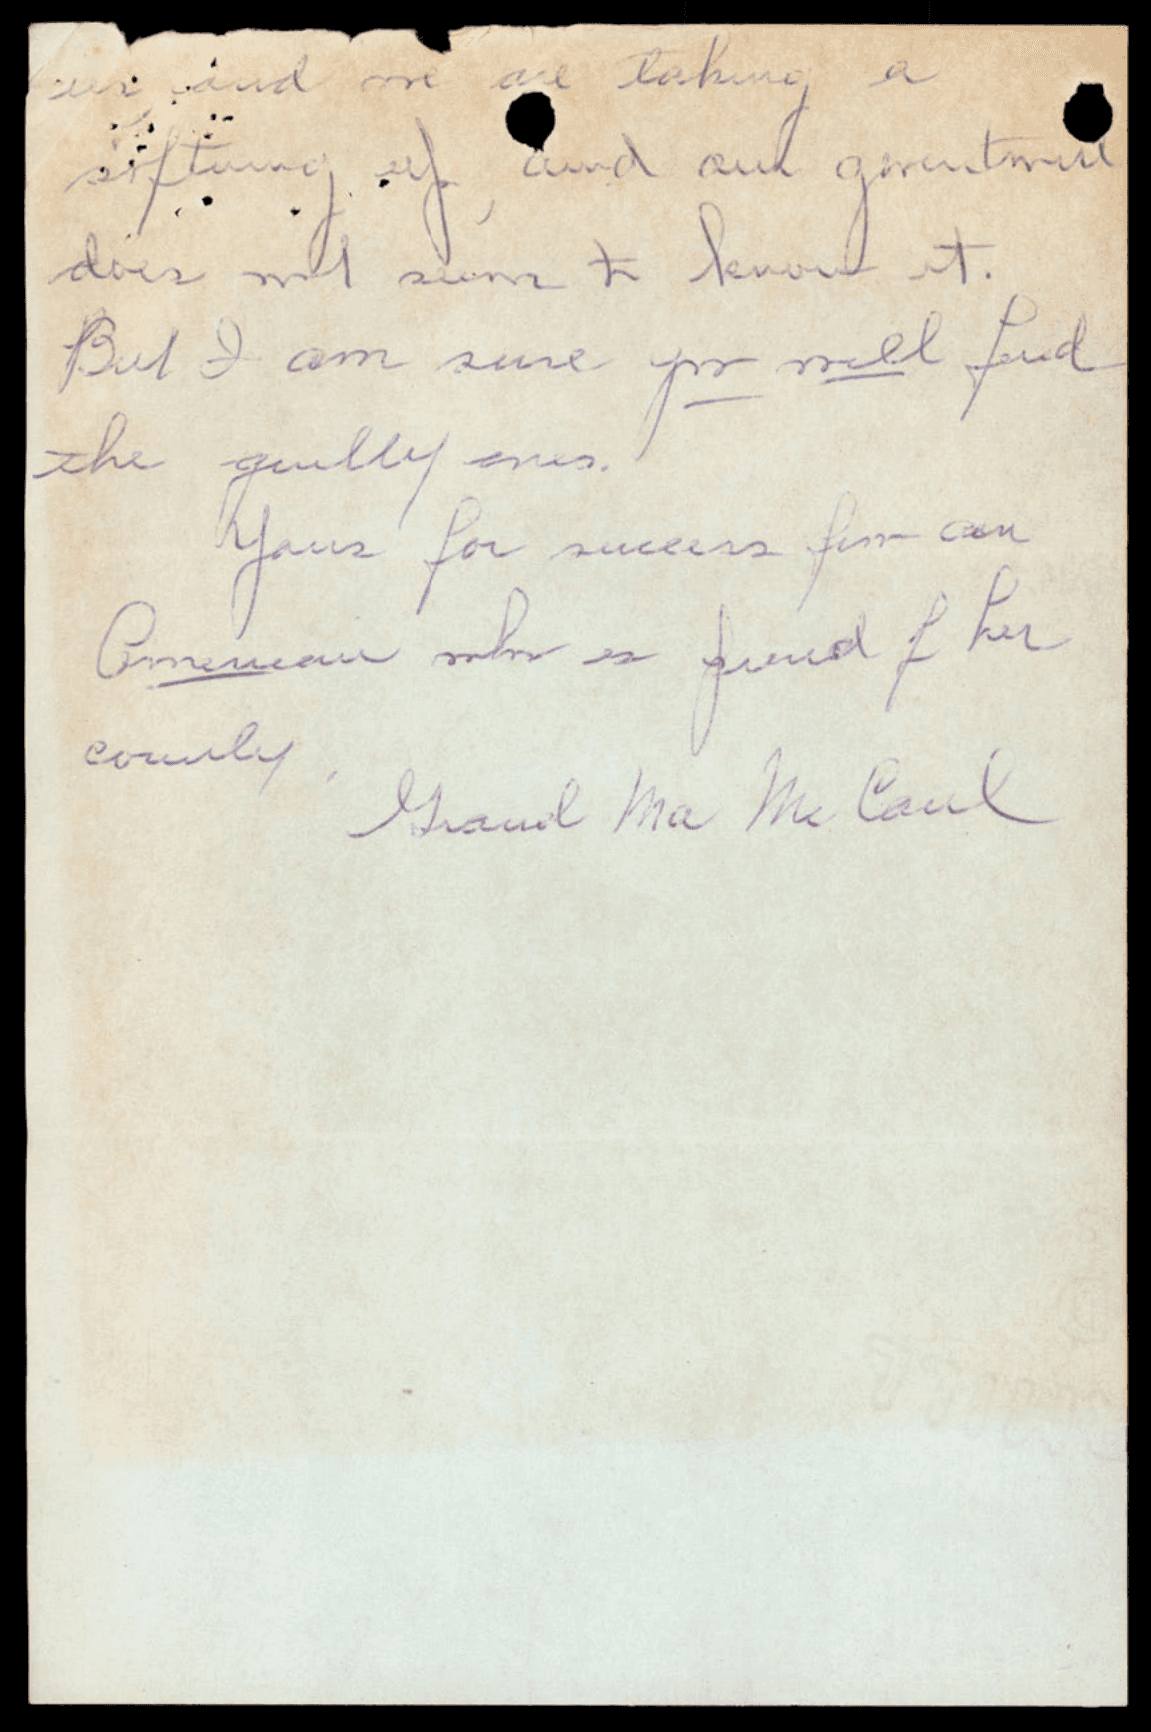 us, and we are taking a
softning up, and our governtment
does not seem to know it.
But I am sure you will find
the guilty ones.
Yours for success from an
American who is proud of her
country.
Grand Ma McCaul